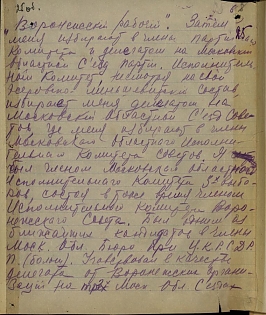 "Воронежский рабочий". Затем
меня избирают в члены парти
Комитета и делегатом на Московский
областной С'езд партии. Исполнитель
ный Комитет несмотря на свой
меньшевистский состав
избирает меня делегатом на
Московский Областной С'езд Сове
тов, где меня избирают в члены
Московского областного Исполни
тельного Комитета Советов. Я
был членом Московского областного
Исполнительного Комитета
ров, состоя в тоже время членом
Исполнительного Комитета Воро
нежского Совета. Был одним из
ближайших кандидатов в члены
Моск. Обл. Бюро при Ц.К. Р.С.Д.Р.
П. (больш.). Участвовал в качестве
делегата от Воронежских органи
заций на Моск. Обл. С'ездах